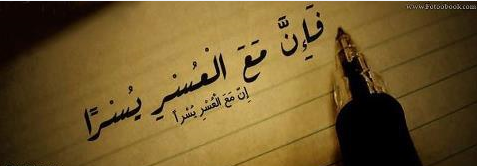 www.Fotoobook.com
فَإِنَّ مَعَ الْعُسْرِ يُسْرًا
إِنَّ مَعَ الْعُسْرِ يُسْرًا